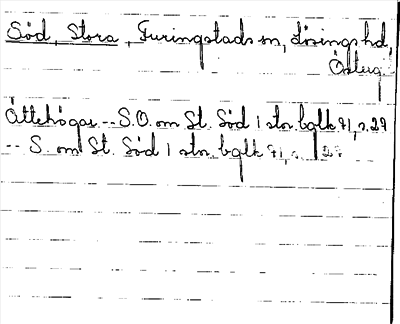 Söd, Stora, Furingstads sn, Lösings hd,
Österg.
Ättehögar -- S.O. om St. Söd 1 stor. bglk 71, s. 29
-- S. om St. Söd 1 stor. bglk 71, s. 29